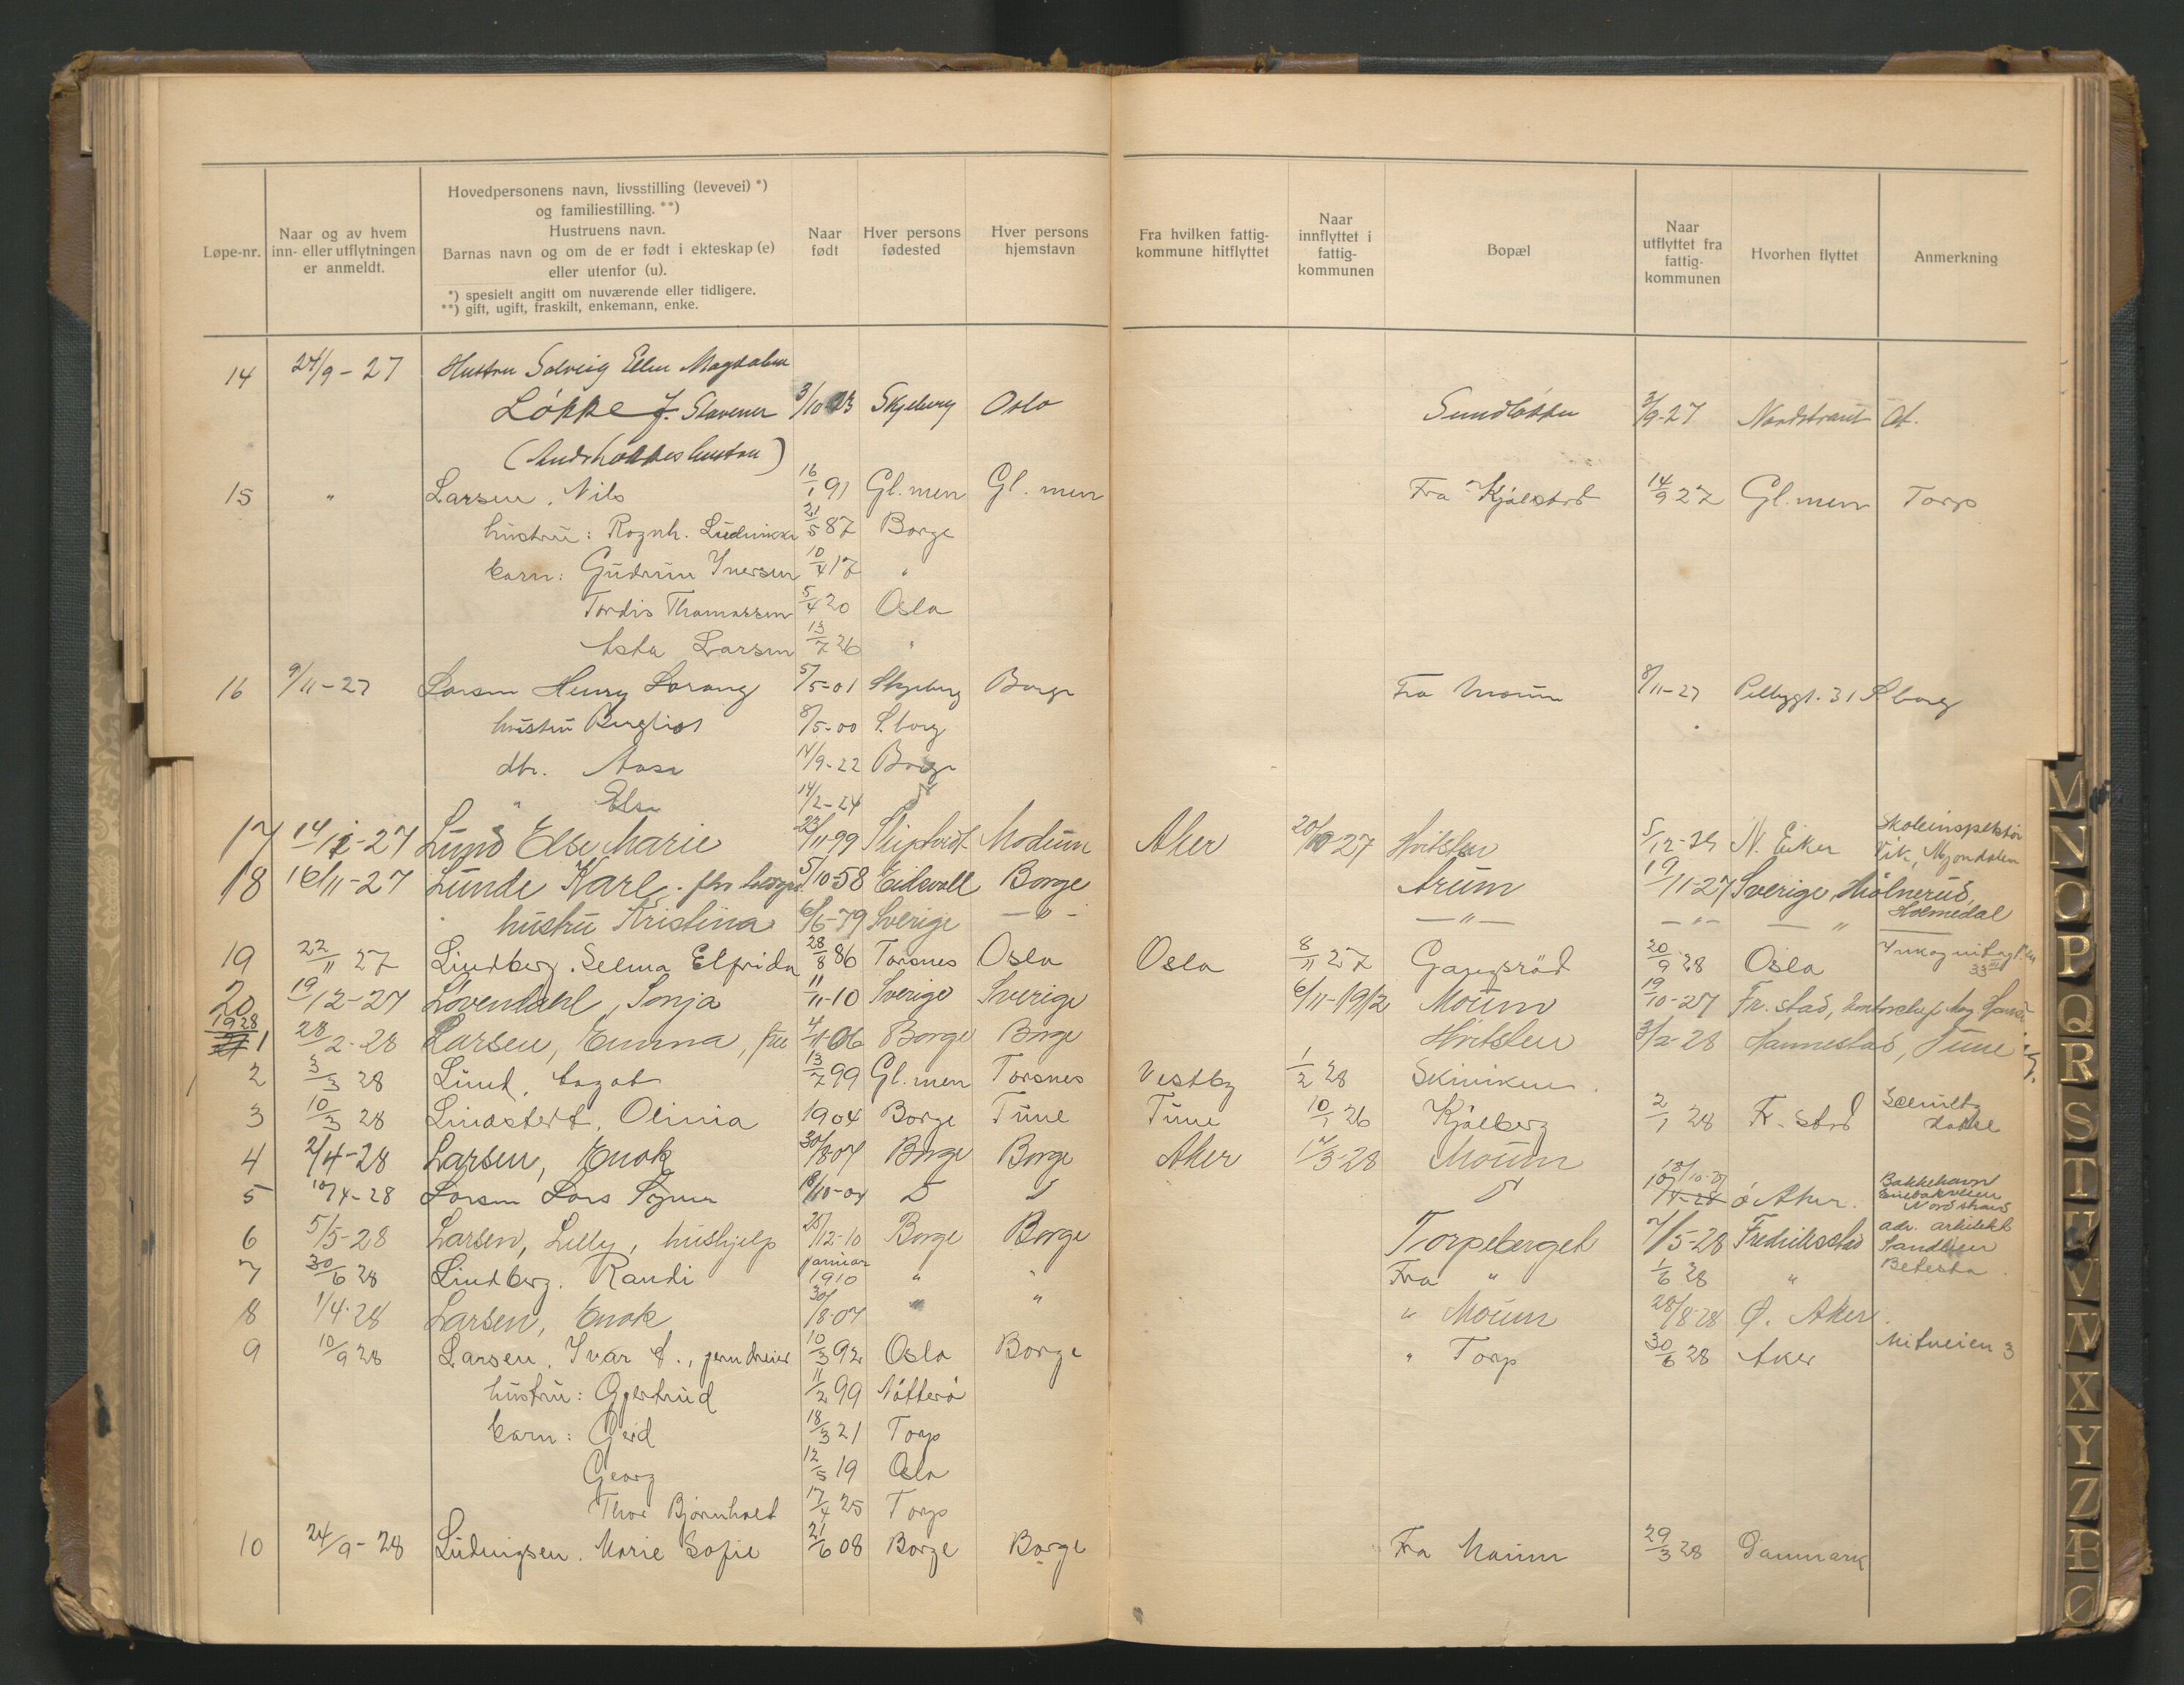 Løpe-nr. | Naar og av hvem inn- eller utflytningen er anmeldt. | Hovedpersonens navn, livsstilling (levevei) *) og familiestilling. **) Hustruens navn. Barnas navn og om de er født i ekteskap (e) eller utenfor (u). *) spesielt angitt om nuværende eller tidligere. **) gift, ugift, fraskilt, enkemann, enke. | Naar født | Hver persons fødested | Hver persons hjemstavn | Fra hvilken fattigkommune hitflyttet | Naar innflyttet i fattigkommunen | Bopæl | Naar utflyttet fra fattigkommunen | Hvorhen flyttet | Anmerkning
14 24/9-27 Hustru Solveig Ellen Magdalen
Løkke f. Stavener 3/10 Skjeberg Oslo Sundløkka 3/9-27 Nordstrand
15 " Larsen, Nils 16/1 91 Gl.men Gl.men Fra Kjølstad 14/9 27 Gl.men Torp
hustru: Ragnh. 21/5 87 Borge
barn: Gudrun Iversen 10/4 17 "
Tordis Thomassen 5/4 20 Oslo
Asta Larsen 13/7 26 "
16 9/11-27 Larsen Henry 5/5-01 Skjeberg Borge Fra Moum 8/11-27 31 S.borg
hustru Bergliot 8/5-00 S.borg
dtr. Aase 14/9-22 Borge
" Else 14/2-24
17 Lund Else Marie 23/11-99 Modum Aker 27 Hvitsten 5/12- N. Eiker Skoleinspektør Vik, Mjøndalen
18 16/11-27 Lunde Karl. 5/10-58 Eidsvoll Borge Årum 19/11-27 Sverige, Hølnerud, Holmedal
hustru Kristina 6/6-79 Sverige -"- -"- -"- - " -
19 22/11 27 Lindberg. Selma Elfrida 28/8 86 Torsnes Oslo Oslo 8/11 27 Gangsrød 20/9 28 Oslo 33 III
20 19/12-27 Løvendahl, Sonja 11/11-10 Sverige Sverige 6/11-1912 Moum 19/10-27 Fr.stad,
1928
1 28/2-28 Larsen, Emma, 4/11-06 Borge Borge Hvitsten 3/2-28 Hannestad, Tune
2 3/3 28 Lund, Aagot 13/7 99 Gl.men Torsnes Vestby 1/2 28 Skiviken.
3 10/3 28 Olivia 1904 Borge Tune Tune 10/1 26 Kjølberg 2/1 28 Fr.stad
4 2/4-28 Larsen, Enok 30/8 07 Borge Borge Aker 1/3-28 Moum
5 10/4-28 Larsen Lars 18/10-04 Ø. Aker. Bakkehavn Enebakveien Nordstrand
6 5/5-28 Larsen, Lilly, hushjelp 25/12-10 Borge Borge Torpeberget 7/5-28 Fredrikstad adr. arkitekt Sandlien
7 30/6 28 Lindberg. Randi januar 1910 " " Fra " 1/6 28 " Betesta.
8 1/4-28 Larsen, Enok 30/8-07 " " " Moum 28/8-28 Ø. Aker.
9 10/9 28 Larsen, Ivar A., jerndreier 10/3 92 Oslo Borge " Torp 30/6 28 Aker 3
hustru: Gjertrud 11/2 99 Nøtterø
barn: Gerd 18/3 21 Torp
Georg 12/5 19 Oslo
Thor Bjørnholt 17/4 25 Torp
10 24/9-28 Ludvigsen. Marie Sofie 21/6 08 Borge Borge Fra Moum 29/3 28 Danmark
M
N
O
P
Q
R
S
T
U
V
W
X
Y
Z
Æ
Ø